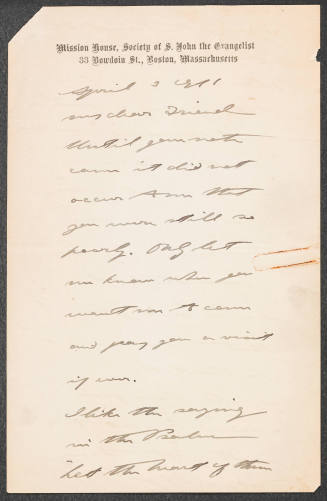 Mission House, Society of S. John the Evangelist
33 Bowdoin St., Boston, Massachusetts
April 3
my dear Friend
Until your note
came it did not
occur to me that
you were still so
poorly. Only let
me know when you
want me to come
and pay you a visit
if ever.
I like the saying
in the Psalm
"Let the heart of them